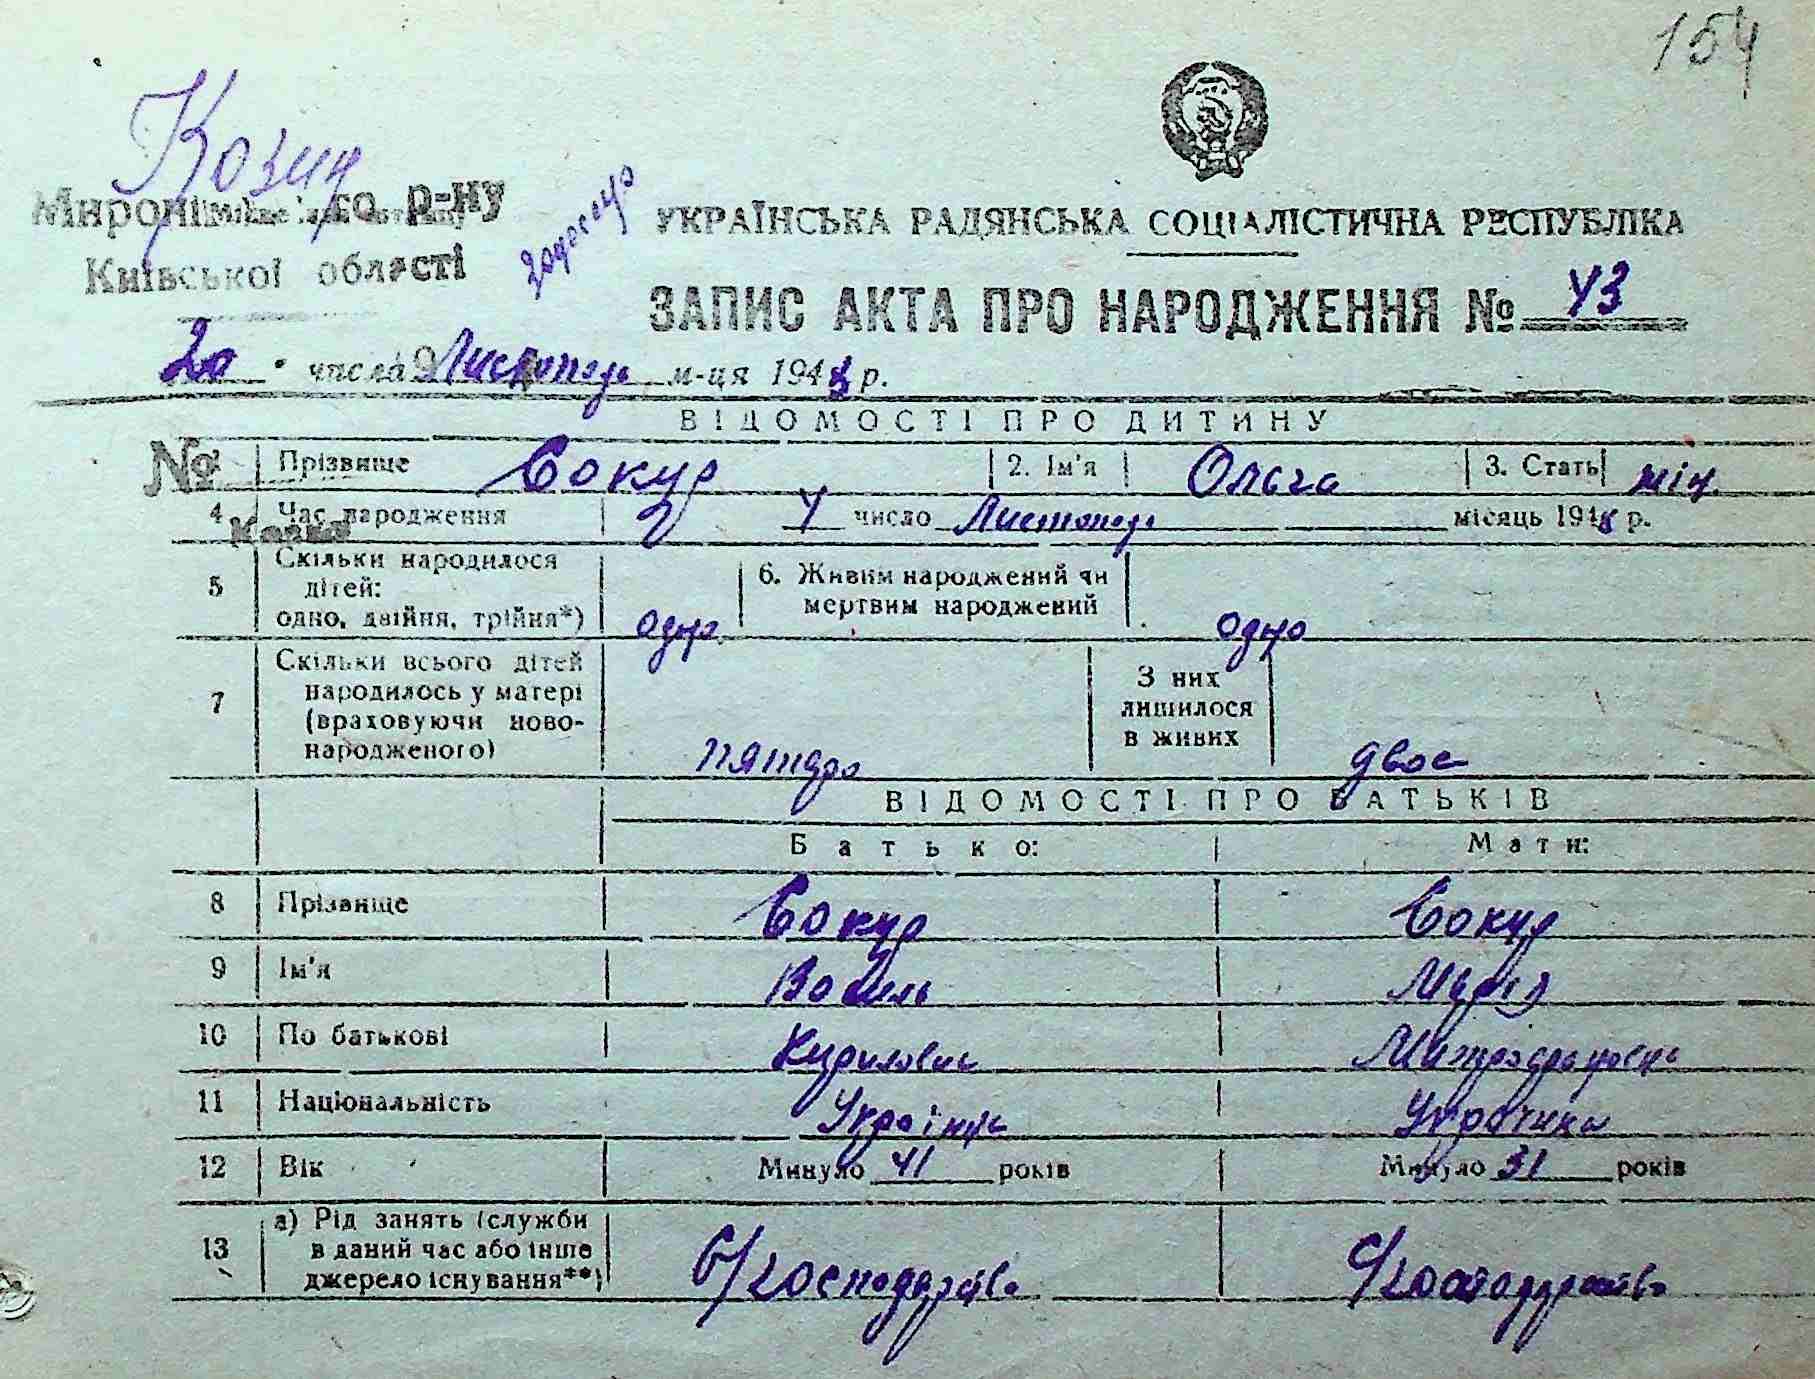 154
Козин
Миронівського р-ну
Київської області
УКРАЇНСЬКА РАДЯНСЬКА СОЦІАЛІСТИЧНА РЕСПУБЛІКА
ЗАПИС АКТА ПРО НАРОДЖЕННЯ № 43
20 числа Листопада м-ця 194 р.
ВІДОМОСТІ ПРО ДИТИНУ
№ Прізвище Сокур 2. Ім'я Ольга 3. Стать жін.
4 Час народження 2 число Листопада місяць 194 р.
5 Скільки народилося дітей: одно, двійня, трійня*) одно 6. Живим народжений чи мертвим народжений одно
7 Скільки всього дітей народилось у матері (враховуючи новонародженого) пятеро З них лишилося в живих двое
ВІДОМОСТІ ПРО БАТЬКІВ
Батько: Мати:
8 Прізвище Сокур Сокур
9 Ім'я Василь Марія
10 По батькові Кирилович Митрофановна
11 Національність Українць Украчинка
12 Вік Минуло 41 років Минуло 31 років
13 а) Рід занять (служби в даний час або інше джерело існування**) С/господарство С/господарство